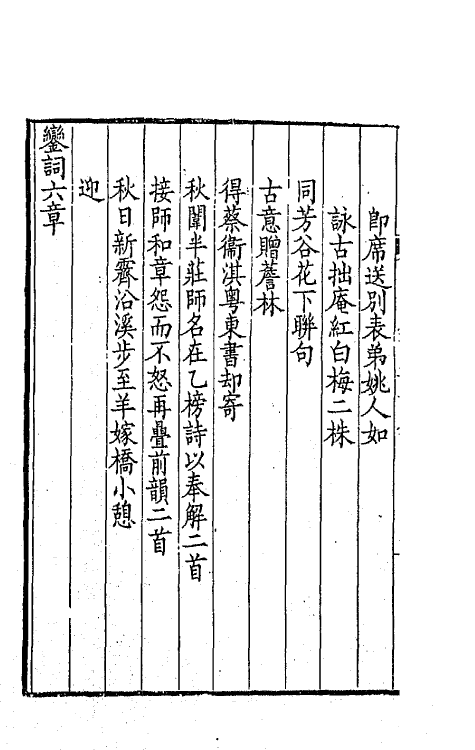 即席送別表弟姚人如
詠古拙庵紅白梅二株
同芳谷花下聯句
古意贈薝林
得蔡衞淇粵東書却寄
秋闈半莊師名在乙榜詩以奉解二首
接師和章怨而不怒再疊前韻二首
秋日新霽沿溪步至羊嫁橋小憩
迎
鑾詞六章